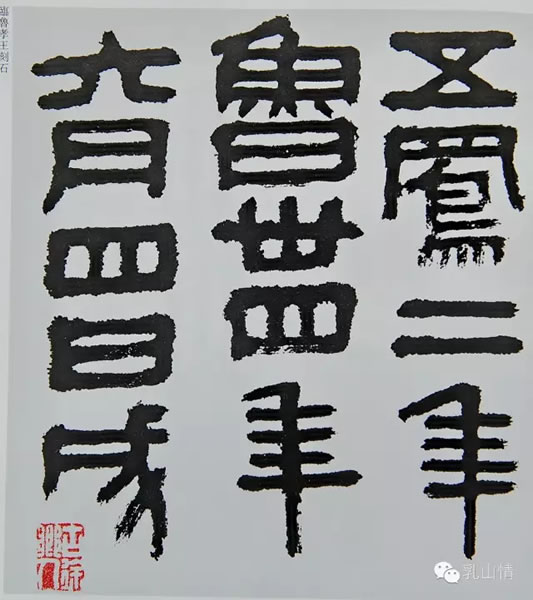 臨魯孝王刻石
五鳳二年
魯卅四年
六月四日成
乳山情